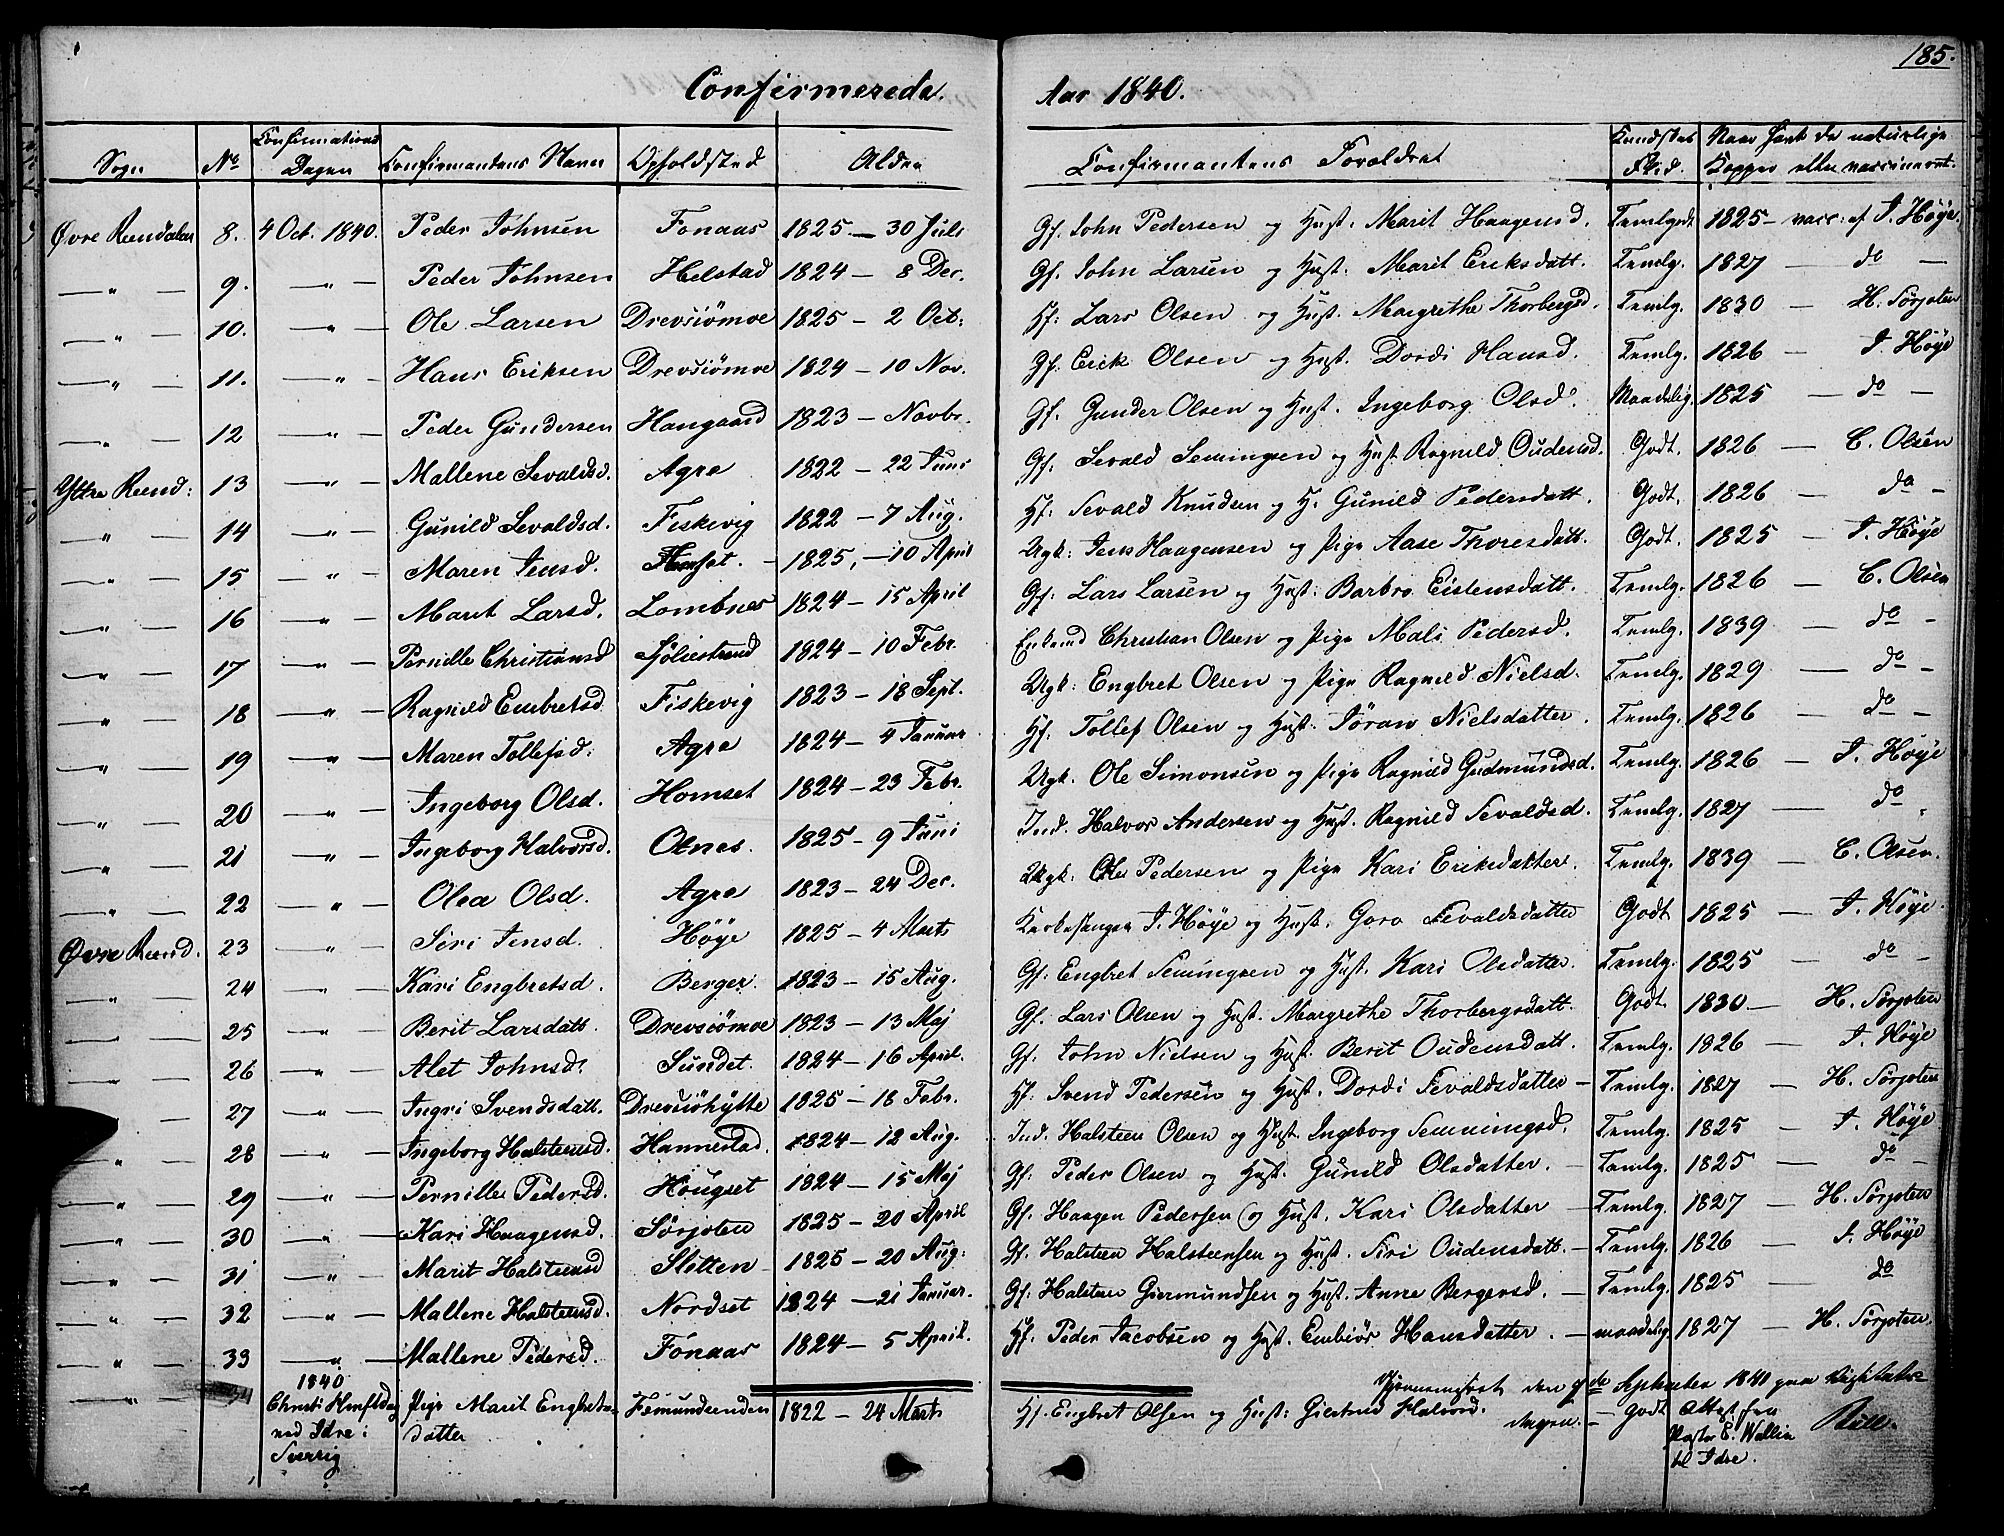 185.
Confirmerede.
Aar 1840.
Sogn
No
Confirmations Dagen
Confirmandens Navn
Opholdsted
Alder
Confirmantens Forældre
Kundskab Flid.
Naar havt de naturlige Kopper eller vaccineret.
Øvre Rendalen 8. 4 Oct. 1840. Peder Johnsen Fonaas 1825. — 30 Juli Gf. John Pedersen og Hust. Marit Haagensd. Temlgodt 1825 - vacc: af J. Høye.
—"— 9. —"— Peder Johnsen Helstad 1824 — 8 Dec. Gf. John Larsen og Hust. Marit Eriksdatt. Temlg. 1827 — do —
—"— 10. —"— Ole Larsen Drevsiömoe 1825 — 2 Oct: Hf: Lars Olsen og Hust. Margrethe Thorbergsd. Temlg. 1830 — H. Sörjoten
—"— 11. —"— Hans Eriksen Drevsiömoe 1824 — 10 Nov. Gf. Erik Olsen og Hust. Dordi Hansd. Temlg. 1826 — J. Høye
—"— 12 —"— Peder Gundersen Haugaard 1823 — Novbr. Gf. Gunder Olsen og Hust. Ingeborg Olsd. Maadelig. 1825 — do —
Yttre Rend: 13 —"— Mallene Sevaldsd. Agre 1822 — 22 Juni Gf. Sevald Semingsen og Hust Ragnild Oudensd. Godt. 1826 — C. Olsen
—"— 14 —"— Gunild Sevaldsd. Fiskevig 1822 — 7 Aug. Hf: Sevald Knudsen og H. Gunild Pedersdatt. Godt. 1826 — do —
—"— 15 —"— Maren Jensd. Homset. — 1825, — 10 April Ugk: Jens Haagensen og Pige Aase Thoresdatt. Godt. 1825 — J. Høye
—"— 16 —"— Marit Larsd. Lombnes 1824 — 15 April Gf: Lars Larsen og Hust: Barbro Eistensdatt. Temlg. 1826 — C. Olsen
—"— 17 —"— Pernille Christiansd Sjöliestrand 1824 — 10 Febr. Enkemd Christian Olsen og Pige Mali Pedersd. Temlg. 1839 — do —
—"— 18 —"— Ragnild Embretsd Fiskevig 1823 — 18 Sept. Ugk: Engbret Olsen og Pige Ragnild Nielsd. Temlg. 1829 — do —
—"— 19 —"— Maren Tollefsd: Agre 1824 — 4 Januar Hf. Tollef Olsen og Hust. Jöran Nielsdatter. Temlg. 1826 — do —
—"— 20 —"— Ingeborg Olsd. Homset 1824 — 23 Febr. Ugk. Ole Simonsen og Pige Ragnild Gudmundsd. Temlg. 1826 — J. Høye
—"— 21 —"— Ingeborg Halvorsd. Otnes. 1825 — 9 Juni Ind. Halvor Andersen og Hust. Ragnild Sevaldsd. Temlg. 1827 — do "
—"— 22 —"— Olea Olsd. Agre 1823 — 24 Dec. Ugk: Ole Pedersen og Pige Kari Eriksdatter. Temlg. 1839 — C. Olsen.
Øvre Rend. 23 " Siri Jensd. Høye 1825 — 4 Marts Kirkesanger J. Høye og Hust. Goro Sevaldsdatter Godt 1825 — J. Høye.
—"— 24 —"— Kari Engbretsd. Berger. 1823 — 15 Aug. Gf. Engbret Semingsen og Hust. Kari Olsdatter. Temlg. 1825 — do —
—"— 25 —"— Berit Larsdatt. Drevsiömoe 1823 — 13 Maj Gf. Lars Olsen og Hust. Margrethe Thorbergsdatt. Godt. 1830 — H. Sörjoten
—"— 26 —"— Alet Johnsd. Sundet. 1824 — 16 April. Gf. John Nielsen og Hust. Berit Oudensdatt. Temlg. 1826 — J. Høye
—"— 27 —"— Ingri Svendsdatt. Drevsiöhytte 1825 — 18 Febr. Hf. Svend Pedersen og Hust. Dordi Sevaldsdatter — Temlg. 1827 — H. Sörjoten
—"— 28 —"— Ingeborg Halsteensd. Hannestad. 1824 — 12 Aug. Ind. Halsteen Olsen og Hust. Ingeborg Semmingsd. Temlg. 1825 — J. Høye
—"— 29 —"— Pernille Pedersd. Hougset 1824 — 15 Maj Gf. Peder Olsen og Hust. Gunild Olsdatter. — Temlg. 1825 — do —
—"— 30 —"— Kari Haagensd. Sörjoten 1825 — 20 April Gf. Haagen Pedersen og Hust. Kari Olsdatter — Temlg. 1827 — H. Sörjoten
—"— 31 —"— Marit Halsteensd Sletten — 1825 — 20 Aug: Gf. Halsteen Halsteensen og Hust. Siri Oudensdatt. — Temlg. 1826 — J. Høye
—"— 32 —"— Mallene Halsteensd. Nordset 1824 — 21 Januar. Gf. Halsteen Giermundsen og Hust. Anne Bergersd. — Temlg. 1825 — do
—"— 33 —"— Mallene Pedersd. Fonaas 1824 — 5 April. Hf. Peder Jacobsen og Hust. Embiör Hansdatter. — maadelig 1827 — H. Sörjoten.
—"— 34 1840 Christi Himfltdag ved Idre i Sverrig Pige Marit Engbretsdatter Femundsenden 1822 — 24 Marts Hf. Engbret Olsen og Hust: Giertrud Halvord. — Godt Attest fra Pastor E. Wallin til Idre.
den 7de September 1840 paa Visitatsdagen. —